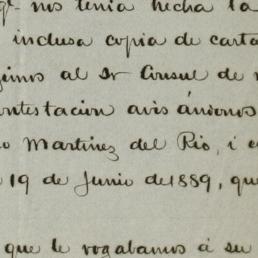 nos tenia hecha la
inclusa copia de carta
al Sr Consul de
contestacion avisándonos
Martinez del Rio, i
19 de Junio de 1889, que
que le rogabamos á su